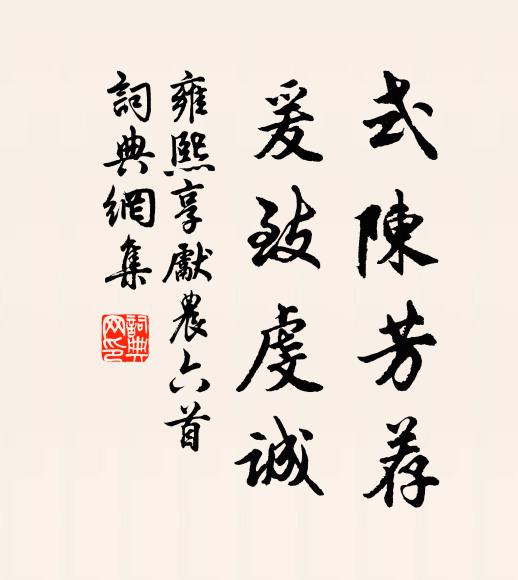 式陳芳荐
爰致虔誠
雍熙享獻農六首
詞典網集
詞典网印